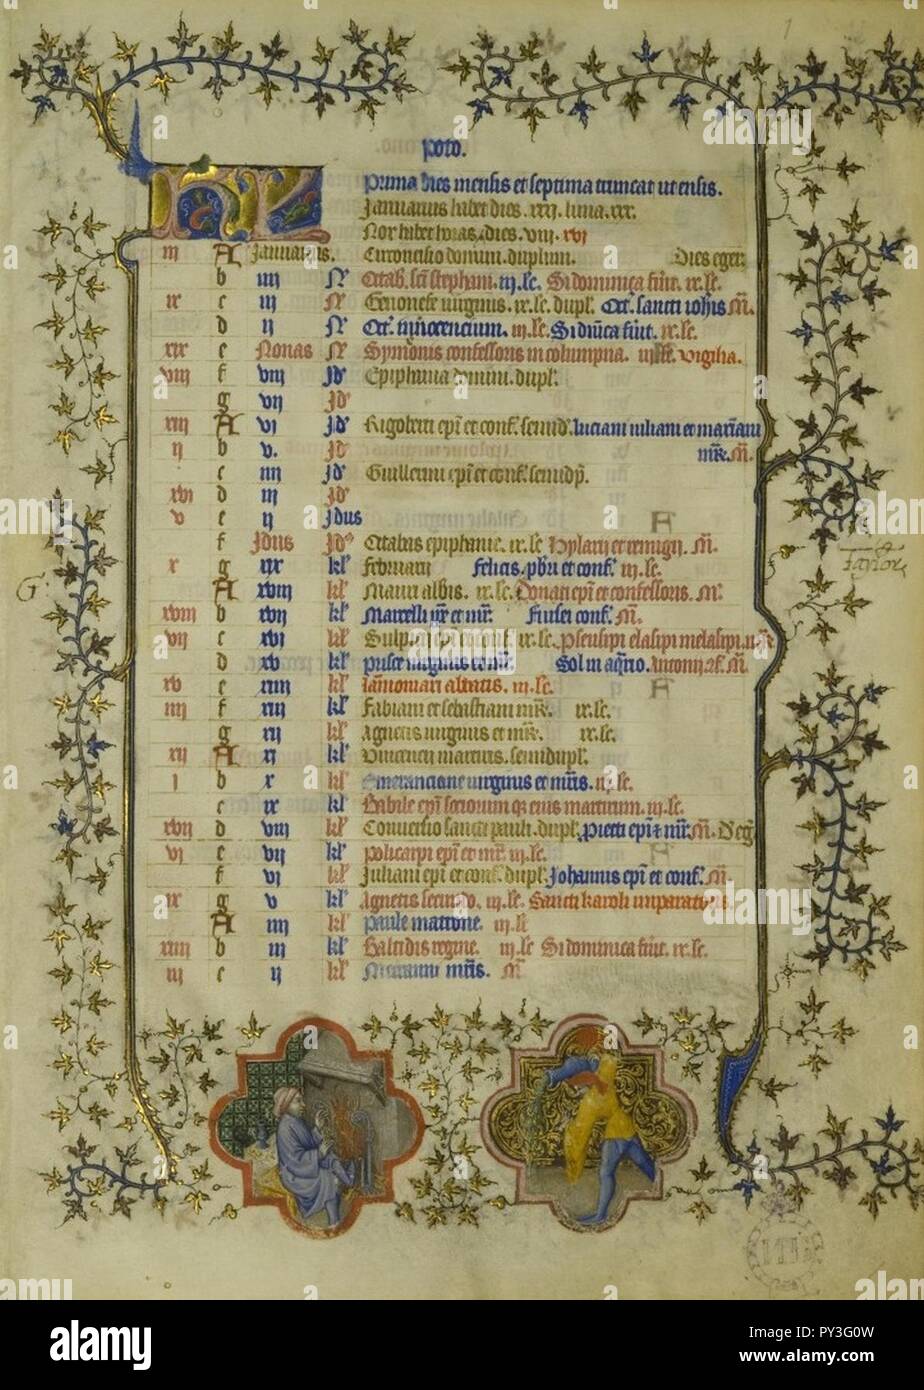 1
poto.
KL Prima dies mensis et septima truncat ut ensis.
Januarius habet dies .xxxj. luna .xxx.
Nox habet horas .xvi
iij A Januarius. Circoncisio domini. duplum. Dies eger
b iiij N' Octab. sci stephani. iij. lc. Si dominica fu'it. ix. lc.
xi c iij N' Genouefe uirginis. ix. lc. dupl. Oct. sancti ioh'is M.
d ij N' Oct. innocencium. iij. lc. Si d'nica fu'it. ix. lc.
xix e Nonas N' Symonis confessoris in columpna. iij. lc. Vigilia.
viij f viij Jd' Epiphania domini. dupl.
g vij Jd'
xvj A vj Jd' Rigoberti ep'i et conf. semid'. luciani iuliani et
m'r. M.
ij b v. Jd'
c iiij Jd' Guillermi ep'i et conf. semidp'.
xvj d iij Jd'
v e ij Jdus
f Jdus Jd' Octabas epiphanie. ix. lc Hylarij et remigij. M.
x g xix kl' Februarij Felicis. pbri et conf. iij. lc.
A xviij kl' Mauri abbis. ix. lc. Donati ep'i et confessoris. M.
xviij b xvij kl' Marcelli et m'r. Fursei conf. M.
vij c xvj kl' Sulpicij ep'i et conf. ix. lc. Pseusipi elasipi melasipi.
d xv kl' Prisce uirginis et m'r. Sol in aq'rio. Antonij M.
xv e xiiij kl' abbatis. iij. lc.
iiij f xiij kl' Fabiani et sebastiani m'r. ix. lc.
g xij kl' Agnetis uirginis et m'r. ix. lc.
xij A xj kl' Vincencij martiris. semidupl.
j b x kl' Emerenciane uirginis et m'ris. iij. lc.
c ix kl' Babile ep'i sociorum q; eius martirum. iij. lc.
xvij d viij kl' Conuersio sancti pauli. dupl. ep'i et m'r. M. D'eg'
vj e vij kl' policarpi ep'i et m'r. iij. lc.
f vj kl' Juliani ep'i et conf. dupl. Johannis ep'i et conf. M.
ix g v kl' Agnetis secundo. iij. lc. Sancti karoli imperatoris.
A iiij kl' Paule matrone. iij. lc
xiiij b iij kl' Baltidis regine. iij. lc Si dominica fu'it. ix. lc.
iij c ij kl' m'ris. M.
G.
Taylor
alamy
Image ID: PY3G0W
www.alamy.com